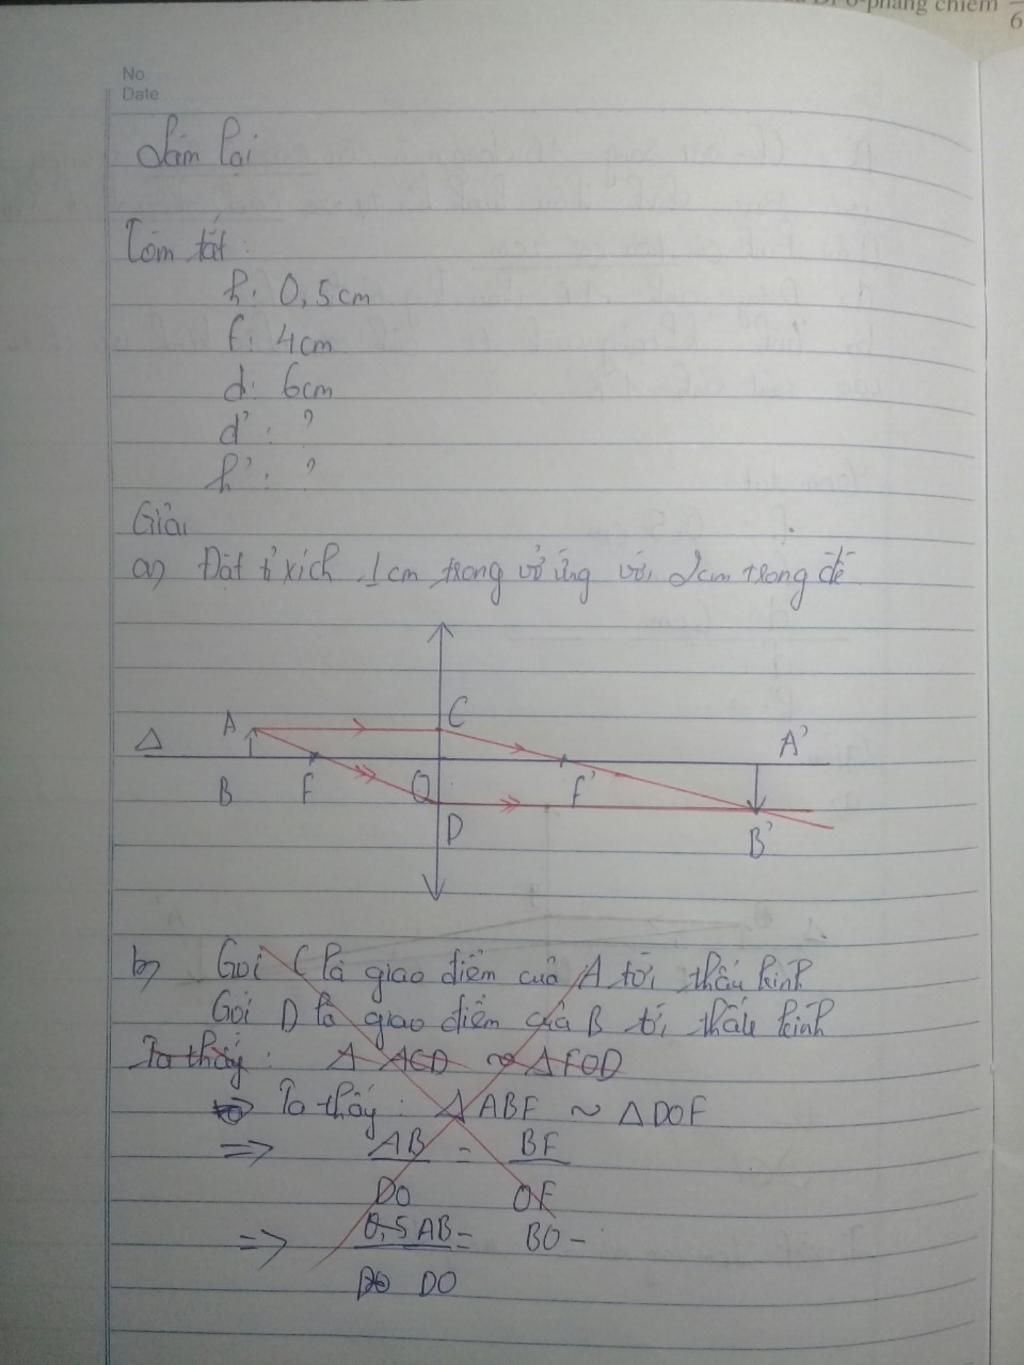 -phẳng chiếm
6
No.
Date
Làm lại
Tóm tắt:
h: 0,5cm
f: 4cm
d: 6cm
d' : ?
h' : ?
Giải
a) Đặt tỉ xích 1cm trong vở ứng với 2cm trong đề
A C
Δ A'
B F O F'
D B'
b) Gọi C là giao điểm của A tới thấu kính
Gọi D là giao điểm của B tới thấu kính
Ta thấy: Δ ACD ~ Δ FOD
=> Ta thấy: Δ ABF ~ Δ DOF
=> AB = BF
DO OF
=> 0,5 AB = BO -
DO DO